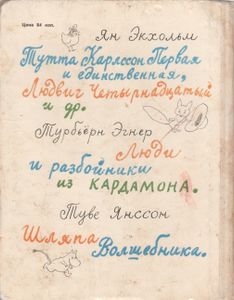 Цена 84 коп.
Ян Экхольм
Тутта Карлссон Первая
и единственная,
Людвиг Четырнадцатый
и др.
Турбьёрн Эгнер
Люди
и разбойники
из КАРДАМОНА.
Туве Янссон
Шляпа
Волшебника.